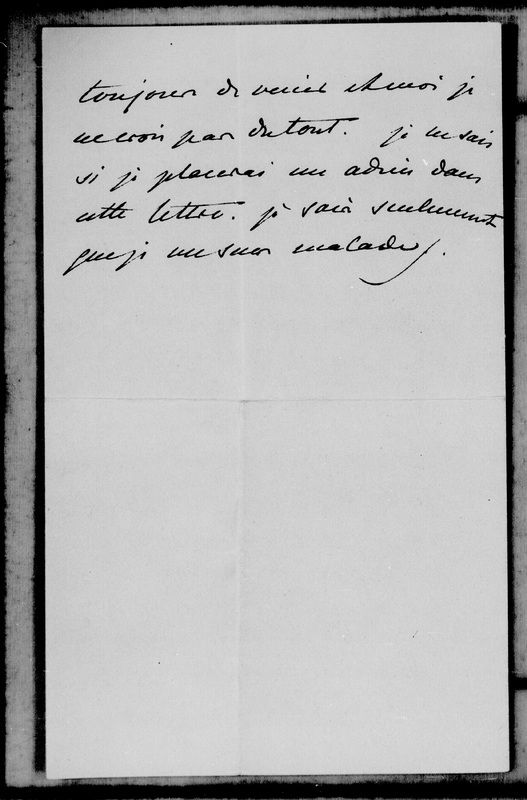 toujours de venir et moi je
ne crois pas du tout. je ne sais
si je placerai un adieu dans
cette lettre. je sais seulement
que je me sens malade.